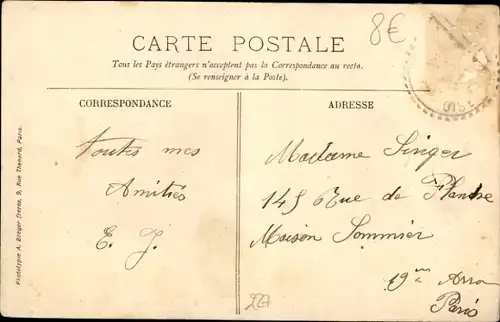 8€
CARTE POSTALE
Tous les Pays étrangers n'acceptent pas la Correspondance au recto.
(Se renseigner à la Poste).
OISE
CORRESPONDANCE
ADRESSE
toutes mes
Amitiés
E. J.
Madame Singer
145 Rue de Flandre
Maison Sommier
19ème Arron
Paris
227
Phototypie A. Breger frères, 9, Rue Thénard, Paris.